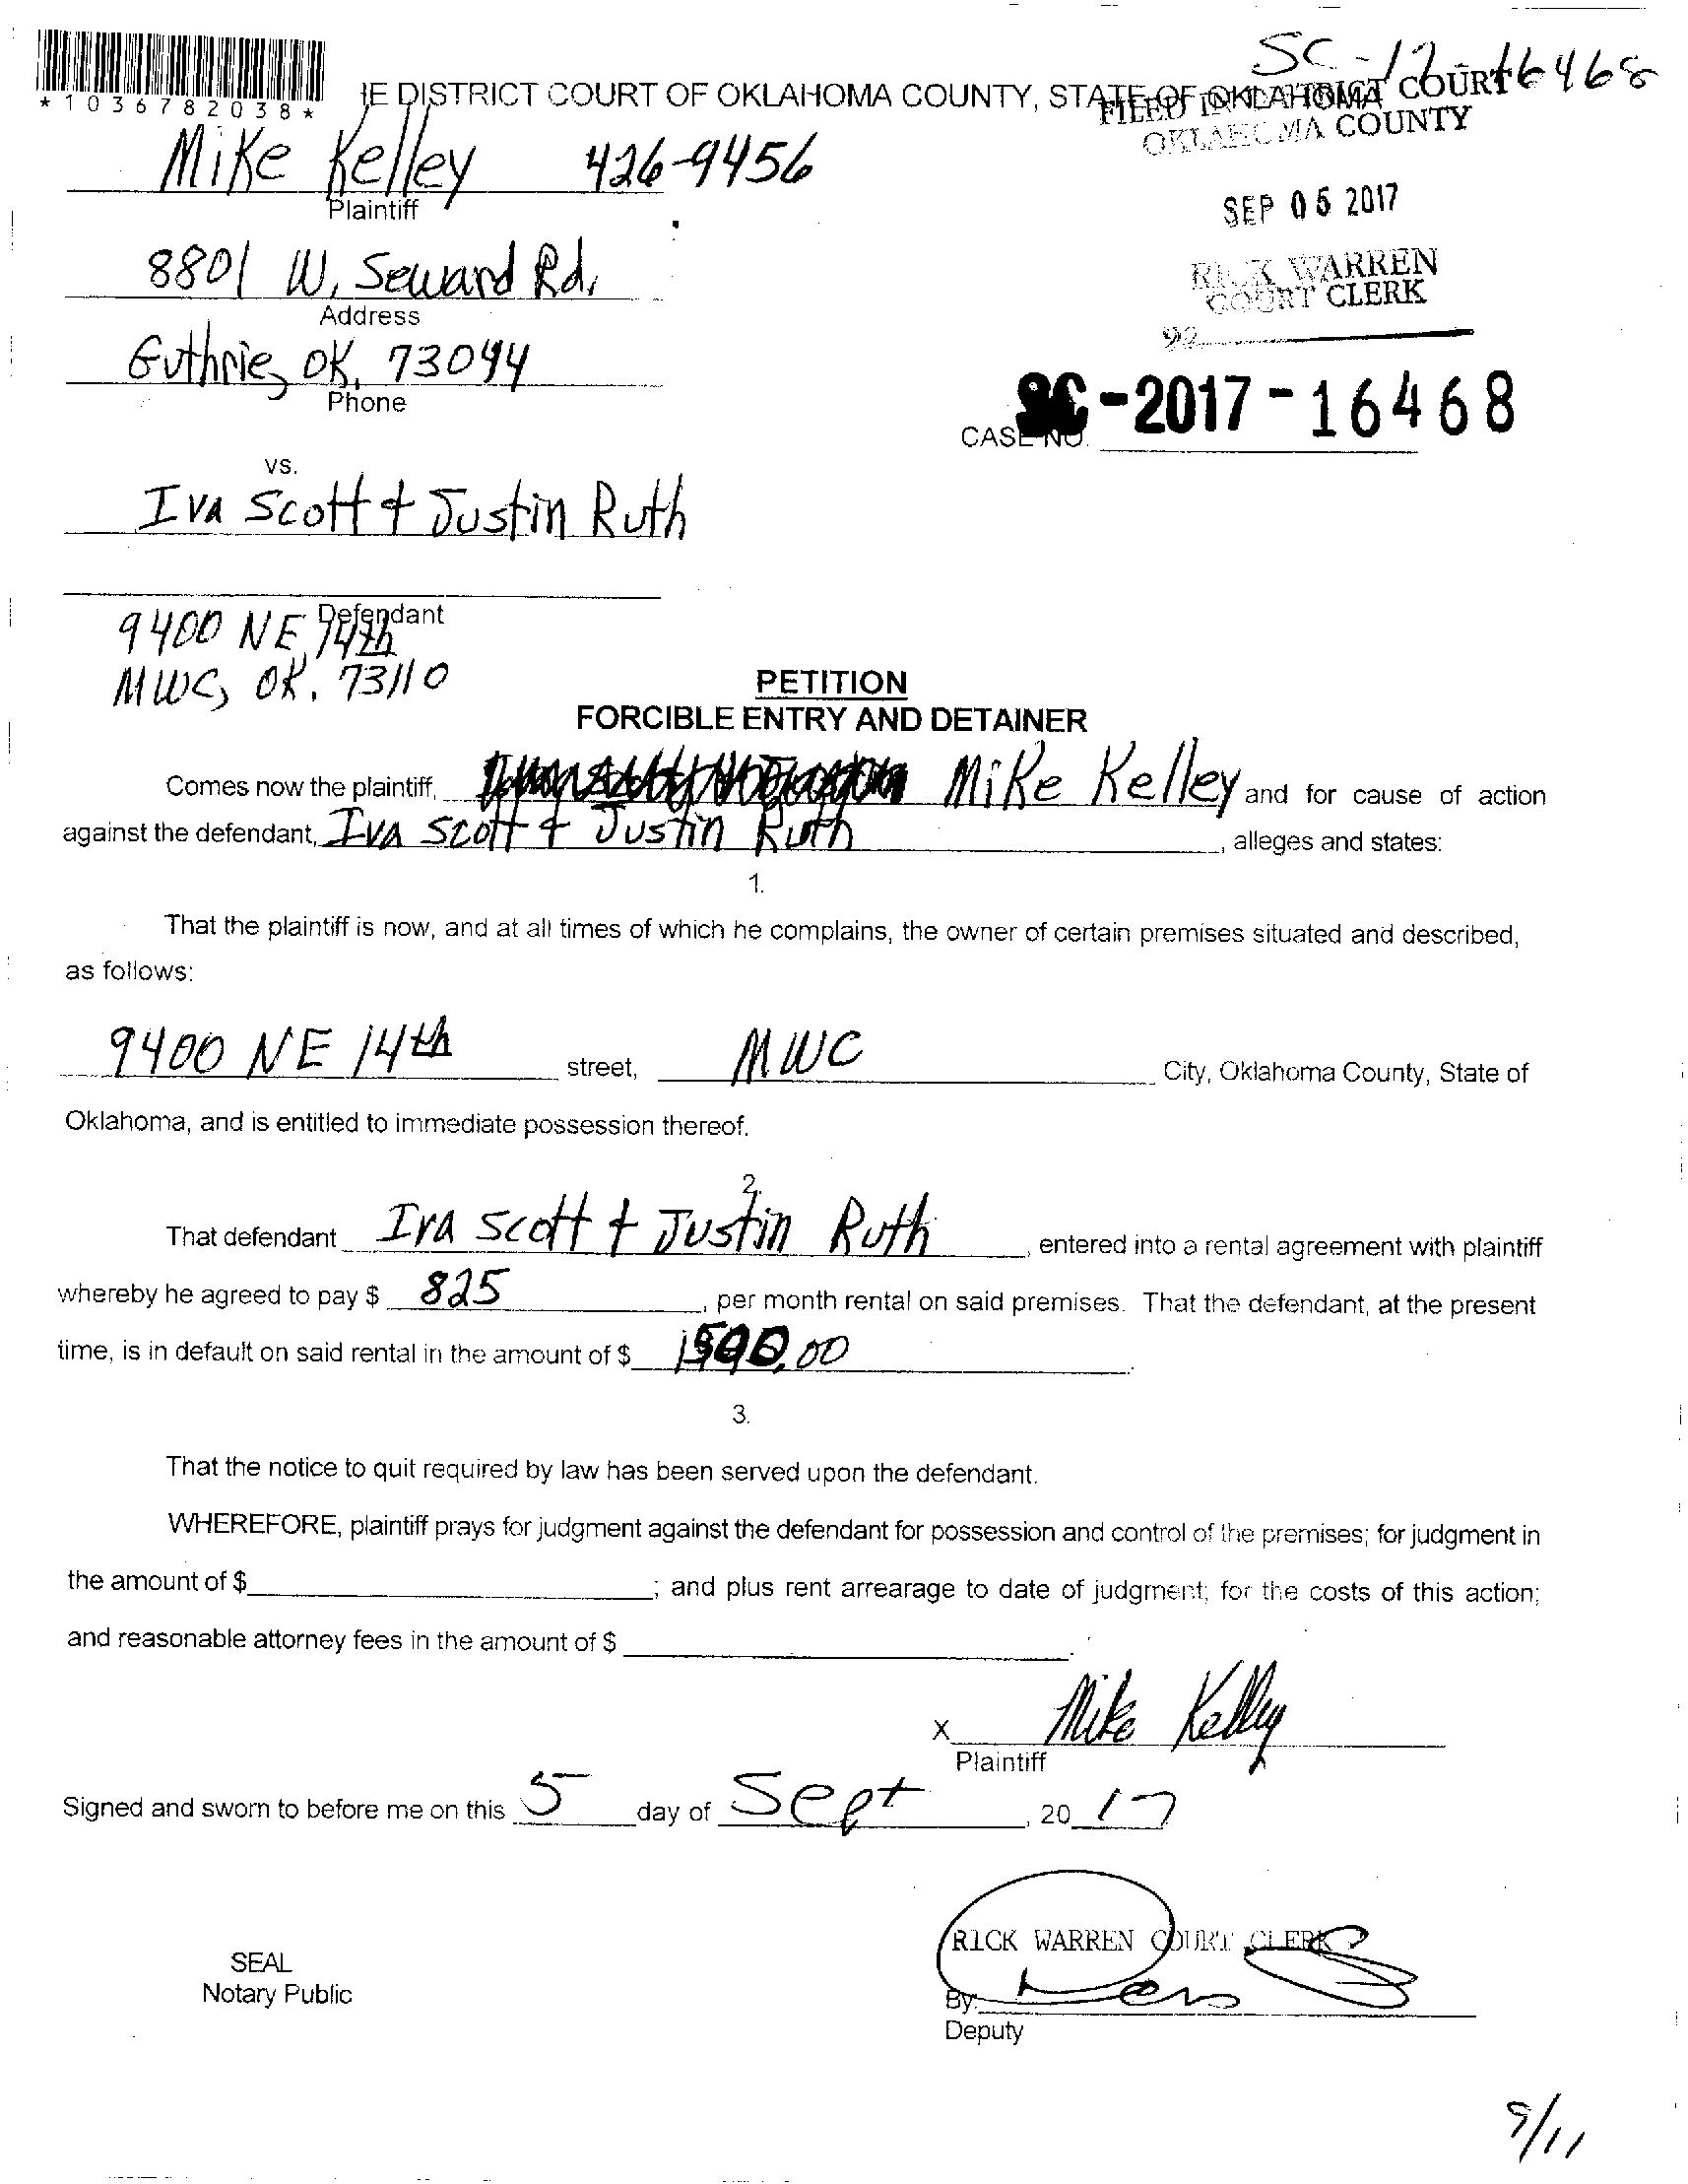 SC-17-16468
*1036782038*
IE DISTRICT COURT OF OKLAHOMA COUNTY, STATE OF OKLAHOMA
FILED IN DISTRICT COURT
OKLAHOMA COUNTY
Mike Kelley 426-9456
Plaintiff
SEP 05 2017
8801 W. Seward Rd.
Address
RICK WARREN
COURT CLERK
Guthrie, OK. 73044
Phone
92
CASE NO. SC-2017-16468
vs.
Iva Scott + Justin Ruth
Defendant
9400 NE 14th
MWC, OK. 73110
PETITION
FORCIBLE ENTRY AND DETAINER
Comes now the plaintiff, Mike Kelley and for cause of action
against the defendant, Iva Scott + Justin Ruth, alleges and states:
1.
That the plaintiff is now, and at all times of which he complains, the owner of certain premises situated and described,
as follows:
9400 NE 14th street, MWC City, Oklahoma County, State of
Oklahoma, and is entitled to immediate possession thereof.
2.
That defendant Iva Scott + Justin Ruth, entered into a rental agreement with plaintiff
whereby he agreed to pay $ 825, per month rental on said premises. That the defendant, at the present
time, is in default on said rental in the amount of $ .
3.
That the notice to quit required by law has been served upon the defendant.
WHEREFORE, plaintiff prays for judgment against the defendant for possession and control of the premises; for judgment in
the amount of $ ; and plus rent arrearage to date of judgment; for the costs of this action;
and reasonable attorney fees in the amount of $ .
X Mike Kelley
Plaintiff
Signed and sworn to before me on this 5 day of Sept, 20 17
RICK WARREN COURT CLERK
SEAL
Notary Public
By:
Deputy
9/11